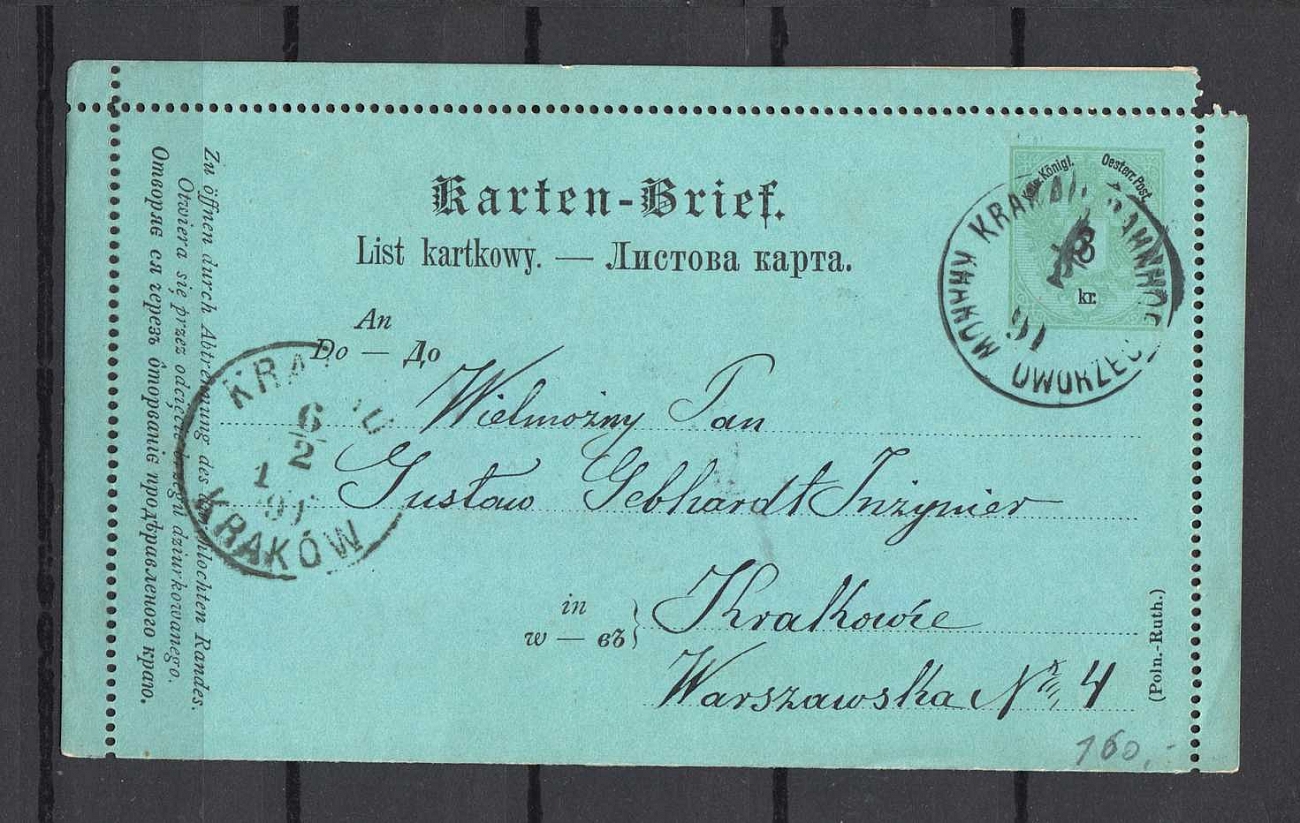 Karten-Brief.
List kartkowy. — Листова карта.
An
Do — До
Wielmożny Pan
Gustaw Gebhardt Inżynier
in
w — въ
Krakowie
Warszawska № 4
(Poln.-Ruth.)
160,-
Zu öffnen durch Abtrennung des durchlochten Randes.
Otwiera się przez odcięcie brzegu dziurkowanego.
Отворяє ся черезъ ѻторванїє продѣравленого краю.
Königl. Oesterr. Post.
3
kr.
KRAKAU BAHNHOF
DWORZEC
91
KRAKAU
6
2
1
91
KRAKÓW